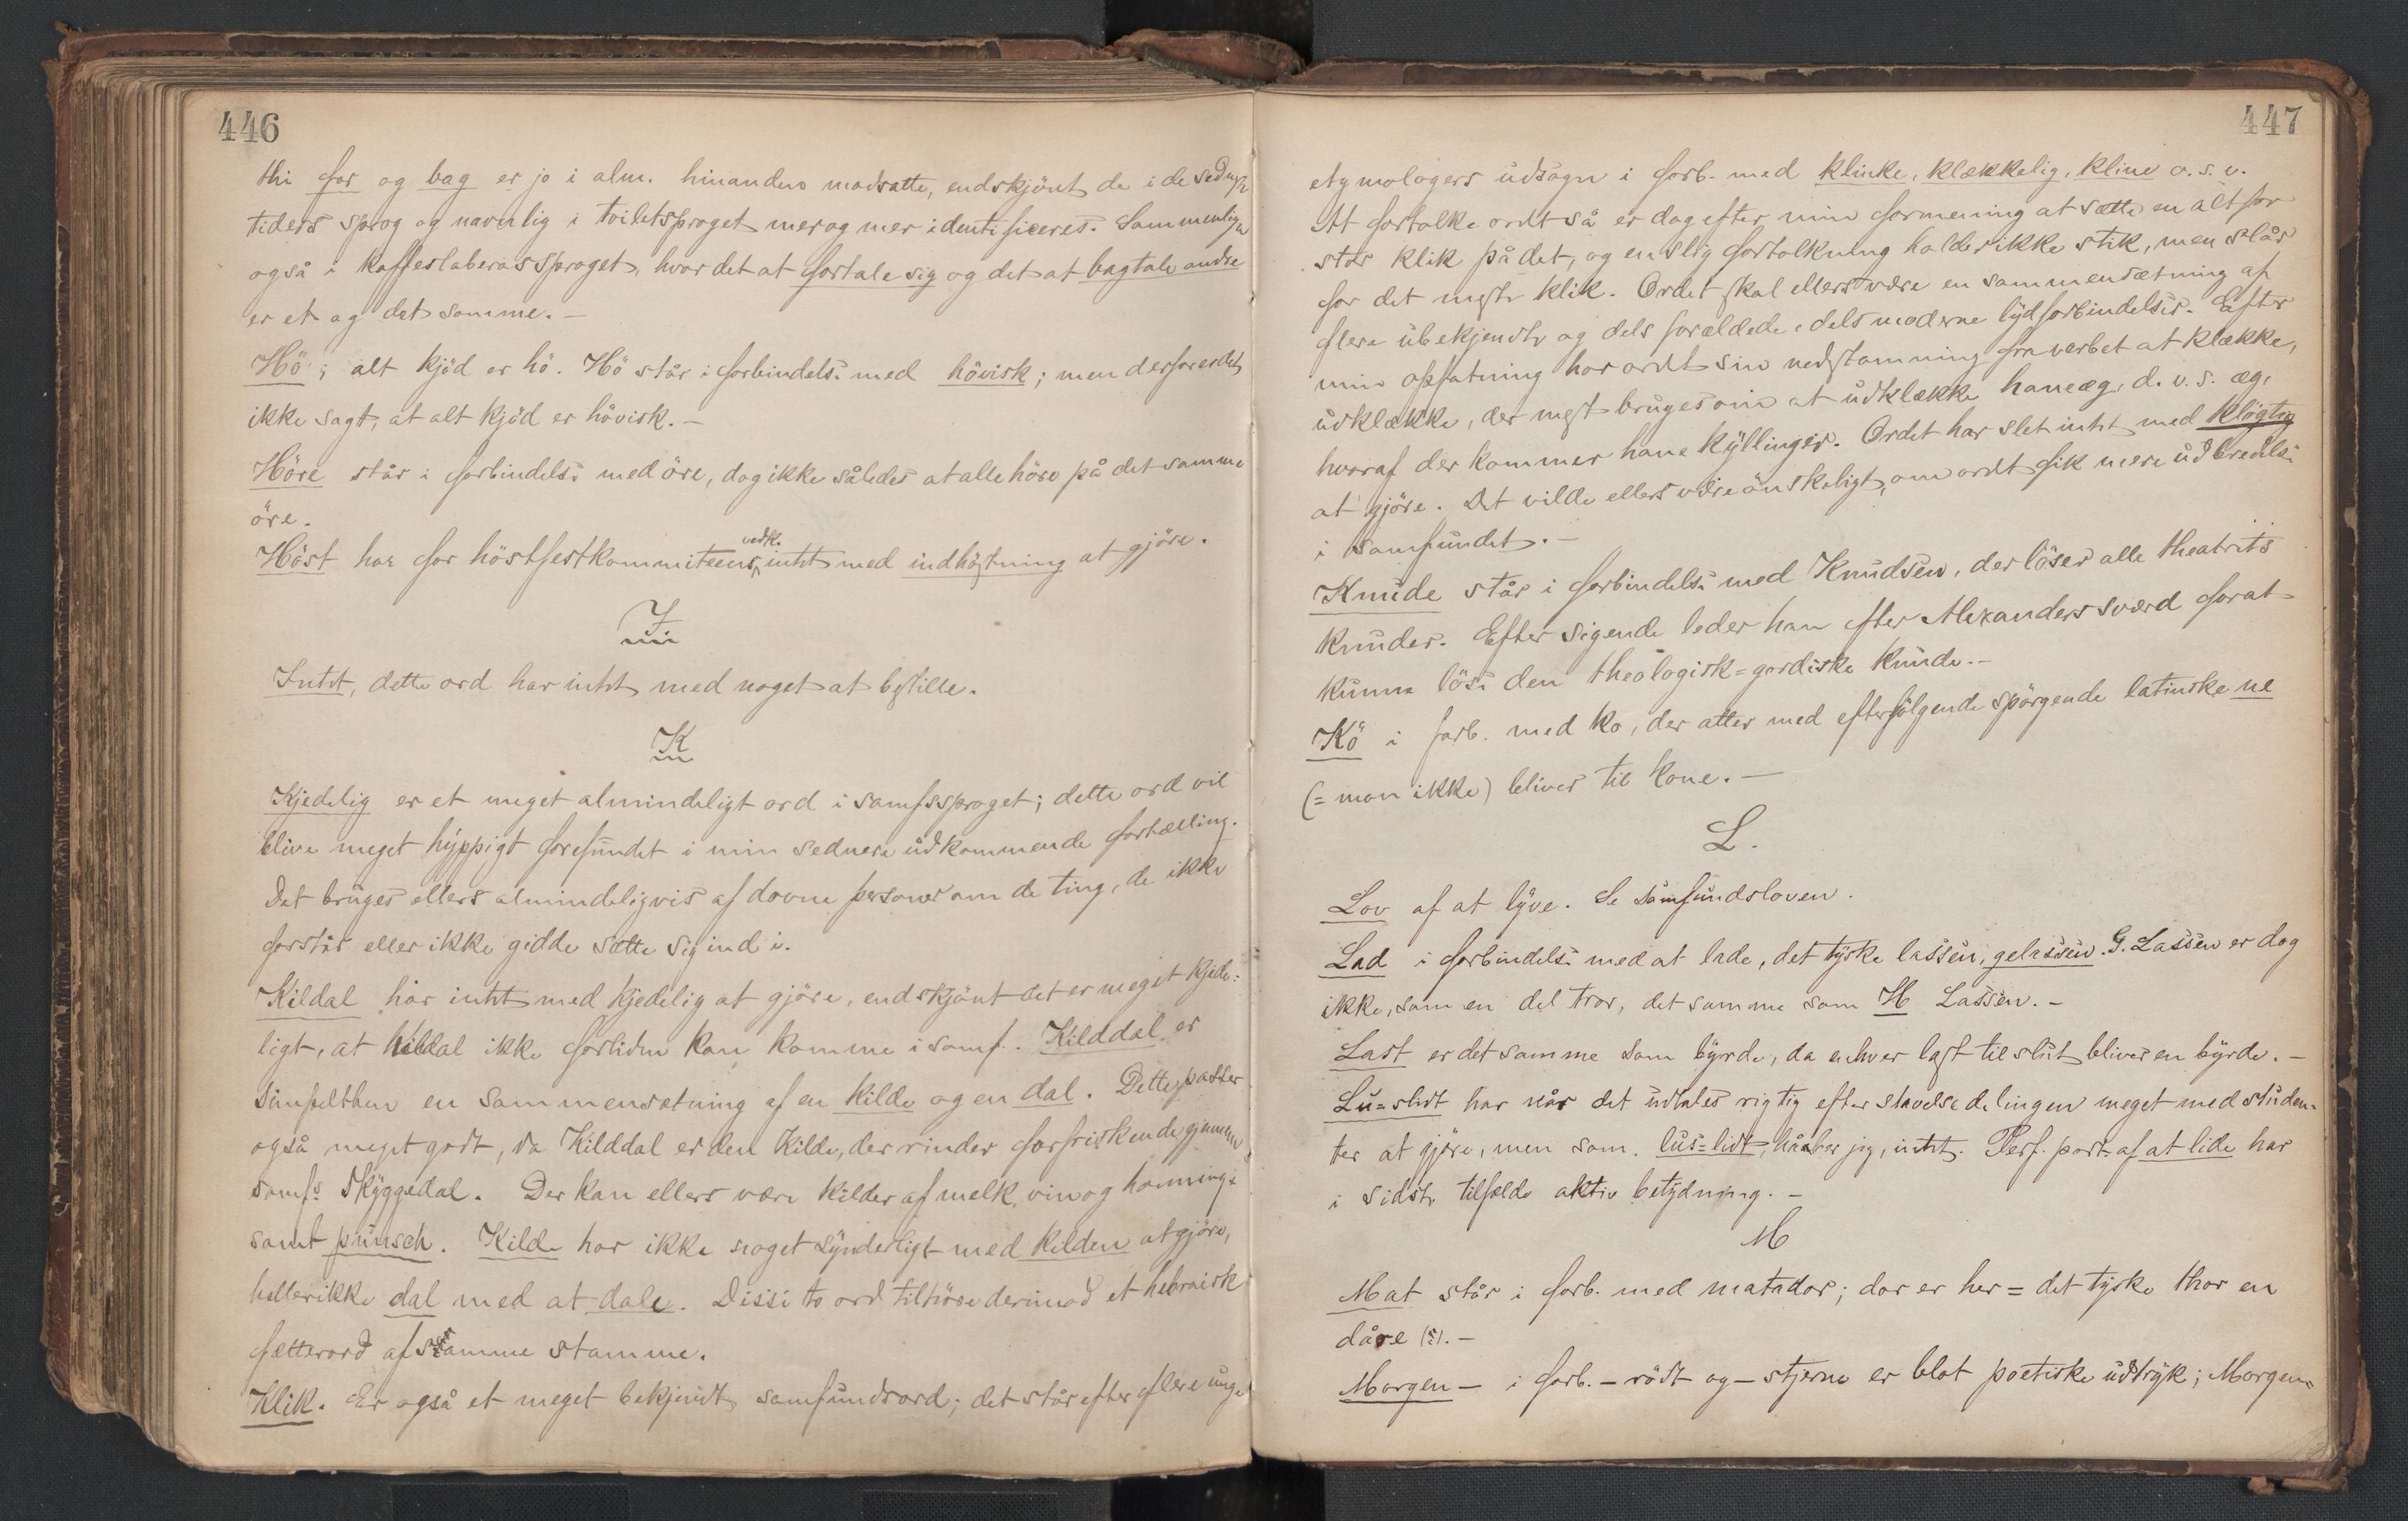 446
thi for og bag er jo i alm. hinandens modsatte, endskjönt de i de sednere
tiders sprog og navnlig i toiletsproget mer og mer identificeres. Sammenlign
også i kaffeslaberassproget, hvor det at fortale sig og det at bagtale andre
er et og det samme. –
Hö; alt kjöd er hö. Hö står i forbindelse med hövisk; men derfor er det
ikke sagt, at alt kjöd er hövisk. –
Höre står i forbindelse med öre, dog ikke således at alle höre på det samme
öre.
Höst har for höstfestkommiteens vedk. intet med indhöstning at gjöre.
I
Intet, dette ord har intet med noget at bestille.
K
Kjedelig er et meget almindeligt ord i samfssproget; dette ord vil
blive meget hyppigt forefundet i min sednere udkommende fortælling.
Det bruges ellers almindeligvis af dovne personer om de ting, de ikke
forstår eller ikke gidde sætte sig ind i.
Kildal har intet med kjedelig at gjöre, endskjönt det er meget kjede:
ligt, at Kildal ikke forliden kan komme i samf. Kilddal er
simpelthen en sammensætning af en kilde og en dal. Dette passer
også meget godt, da Kilddal er den kilde, der rinder forfriskende gjennem
samfs skyggedal. Der kan ellers være kilder af melk, vin og honning:
samt punsch. Kilde har ikke noget synderligt med kilden at gjöre,
heller ikke dal med at dale. Disse to ord tilhöre derimod et hebraisk
fætterord af samme stamme.
Klik. Er også et meget bekjendt samfundsord; det står efter flere unge
447
etymologers udsagn i forb. med klinke, klækkelig, kline o. s. v.
At fortolke ordet så er dog efter min formening at sætte en altfor
stor klik på det, og en slig fortolkning holder ikke stik, men slår
for det meste klik. Ordet skal ellers være en sammensætning af
flere ubekjendte og dels forældede, dels moderne lydforbindelser. Efter
min opfatning har ordet sin nedstamning fra verbet at klække,
udklække, der mest bruges om at udklække haneæg, d. v. s. æg,
hvoraf der kommer hanekyllinger. Ordet har slet intet med klögtig
at gjöre. Det vilde ellers være önskeligt, om ordet fik mere udbredelse
i samfundet. –
Knude står i forbindelse med Knudsen, der löser alle theatrets
knuder. Efter sigende leder han efter Alexanders sværd for at
kunne löse den theologisk-gordiske knude. –
Kö i forb. med ko, der atter med efterfölgende spörgende latinske ne
(= mon ikke) bliver til kone. –
L.
Lov af at lyve. Se samfundsloven.
Lad i forbindelse med at lade, det tyske lassen, gelassen. G. Lassen er dog
ikke, som en del tror, det samme som H Lassen. –
Last er det samme som byrde, da enhver last tilslut bliver en byrde. –
Lu=slidt har når det udtales rigtig efter stavelsedelingen meget med studen=
ter at gjöre, men som lus=lidt, håaber jeg, intet. Perf. part. af at lide har
i sidste tilfælde aktiv betydning. –
M
Mat står i forb. med matador; dor er her = det tyske thor en
dåre (?). –
Morgen – i forb. – rödt og – stjerne er blot poetiske udtryk; Morgen=